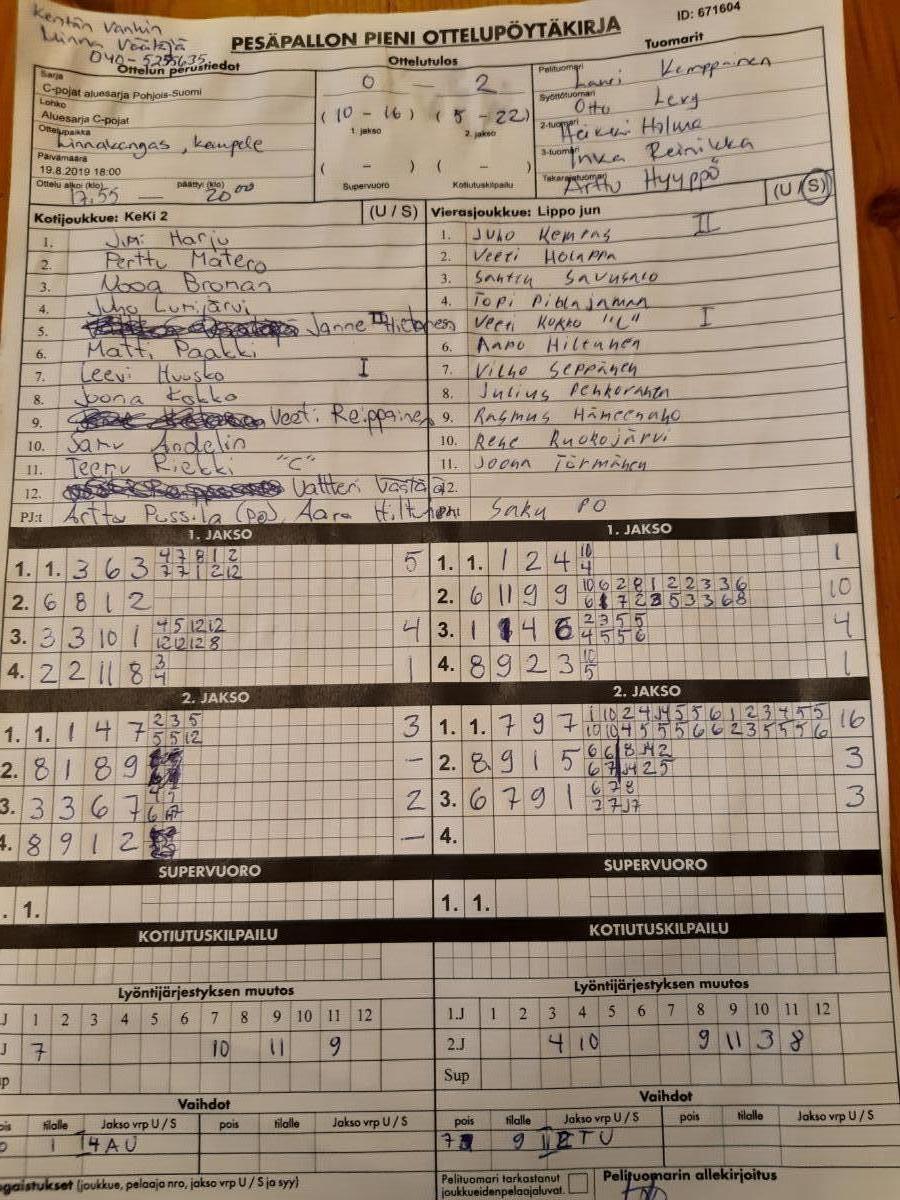 Kentän vanhin
Minna Väätäjä
PESÄPALLON PIENI OTTELUPÖYTÄKIRJA
ID: 671604
Ottelun perustiedot
Sarja
C-pojat aluesarja Pohjois-Suomi
Lohko
Aluesarja C-pojat
Ottelupaikka
Linnakangas, Kempele
Päivämäärä
19.8.2019 18:00
Ottelu alkoi (klo) päättyi (klo)
17.55 — 20⁰⁰
Ottelutulos
0 — 2
(10 - 16) (5 - 22)
1. jakso 2. jakso
( - ) ( - )
Supervuoro Kotiutuskilpailu
Tuomarit
Pelituomari
Lauri Kemppainen
Syöttötuomari
Otto Levy
2-tuomari
Heikki Holma
3-tuomari
Inka Reinikka
Takarajatuomari
Arttu Hyyppö
Kotijoukkue: KeKi 2 (U / S)
1. Jimi Harju
2. Perttu Matero
3. Nooa Broman
4. Juho Lumijärvi
5. Janne II
6. Matti Paakki
7. Leevi Huusko I
8. Joona Kokko
9. Veeti Reippainen
10. Samu Andelin
11. Teemu Riekki "C"
12. Valtteri Västälä
PJ:t Arttu Pussila (PO), Aaro
Vierasjoukkue: Lippo jun (U / S)
1. Juho Kempas II
2. Veeti Holappa
3. Santtu Savusalo
4. Topi Pihlajamaa
Veeti Kokko "C" I
6. Aapo Hiltunen
7. Vilho Seppänen
8. Julius Pehkoranta
9. Rasmus Hämeenaho
10. Rene Ruokojärvi
11. Joona Törmänen
12.
Saku PO
1. JAKSO
1. 1. 3 6 3 4 7 8 1 2 5
7 7 1 2 12
2. 6 8 1 2
3. 3 3 10 1 4 5 12 12 4
12 12 12 8
4. 2 2 11 8 3 1
4
1. JAKSO
1. 1. 1 2 4 10 1
4
2. 6 11 9 9 10 6 2 8 1 2 2 3 3 6 10
3. 1 1 4 6 2 3 5 5 4
4 5 5 6
4. 8 9 2 3 10 1
5
2. JAKSO
1. 1. 1 4 7 2 3 5 3
5 5 12
2. 8 1 8 9 —
3. 3 3 6 7 2
4. 8 9 1 2 —
2. JAKSO
1. 1. 7 9 7 16
2. 8 9 1 5 3
3. 6 7 9 1 6 7 8 3
4.
SUPERVUORO
1.
SUPERVUORO
1. 1.
KOTIUTUSKILPAILU
KOTIUTUSKILPAILU
Lyöntijärjestyksen muutos
J 1 2 3 4 5 6 7 8 9 10 11 12
J 7 10 11 9
Lyöntijärjestyksen muutos
1.J 1 2 3 4 5 6 7 8 9 10 11 12
2.J 4 10 9 11 3 8
Sup
Vaihdot
tilalle Jakso vrp U / S pois tilalle Jakso vrp U / S
1 I4AU
Vaihdot
pois tilalle Jakso vrp U / S pois tilalle Jakso vrp U / S
(joukkue, pelaaja nro, jakso vrp U / S ja syy)
Pelituomari tarkastanut
joukkueidenpelaajaluvat.
Pelituomarin allekirjoitus